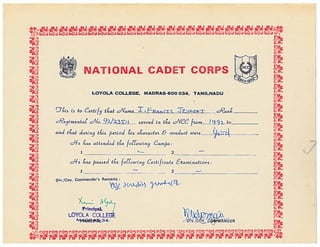 NATIONAL CADET CORPS
LOYOLA COLLEGE, MADRAS-600 034, TAMILNADU
This is to Certify that Name I. FRANCIS Rank
Regimental No. served in the NCC from 1992 to
and that during this period his character & conduct were Good
He has attended the following Camps:
1 – 2 –
He has passed the following Certificate Examinations:
1 – 2 –
Div./Coy. Commander's Remarks:
Principal,
LOYOLA COLLEGE
MADRAS-34.
DIV./COY. COMMANDER